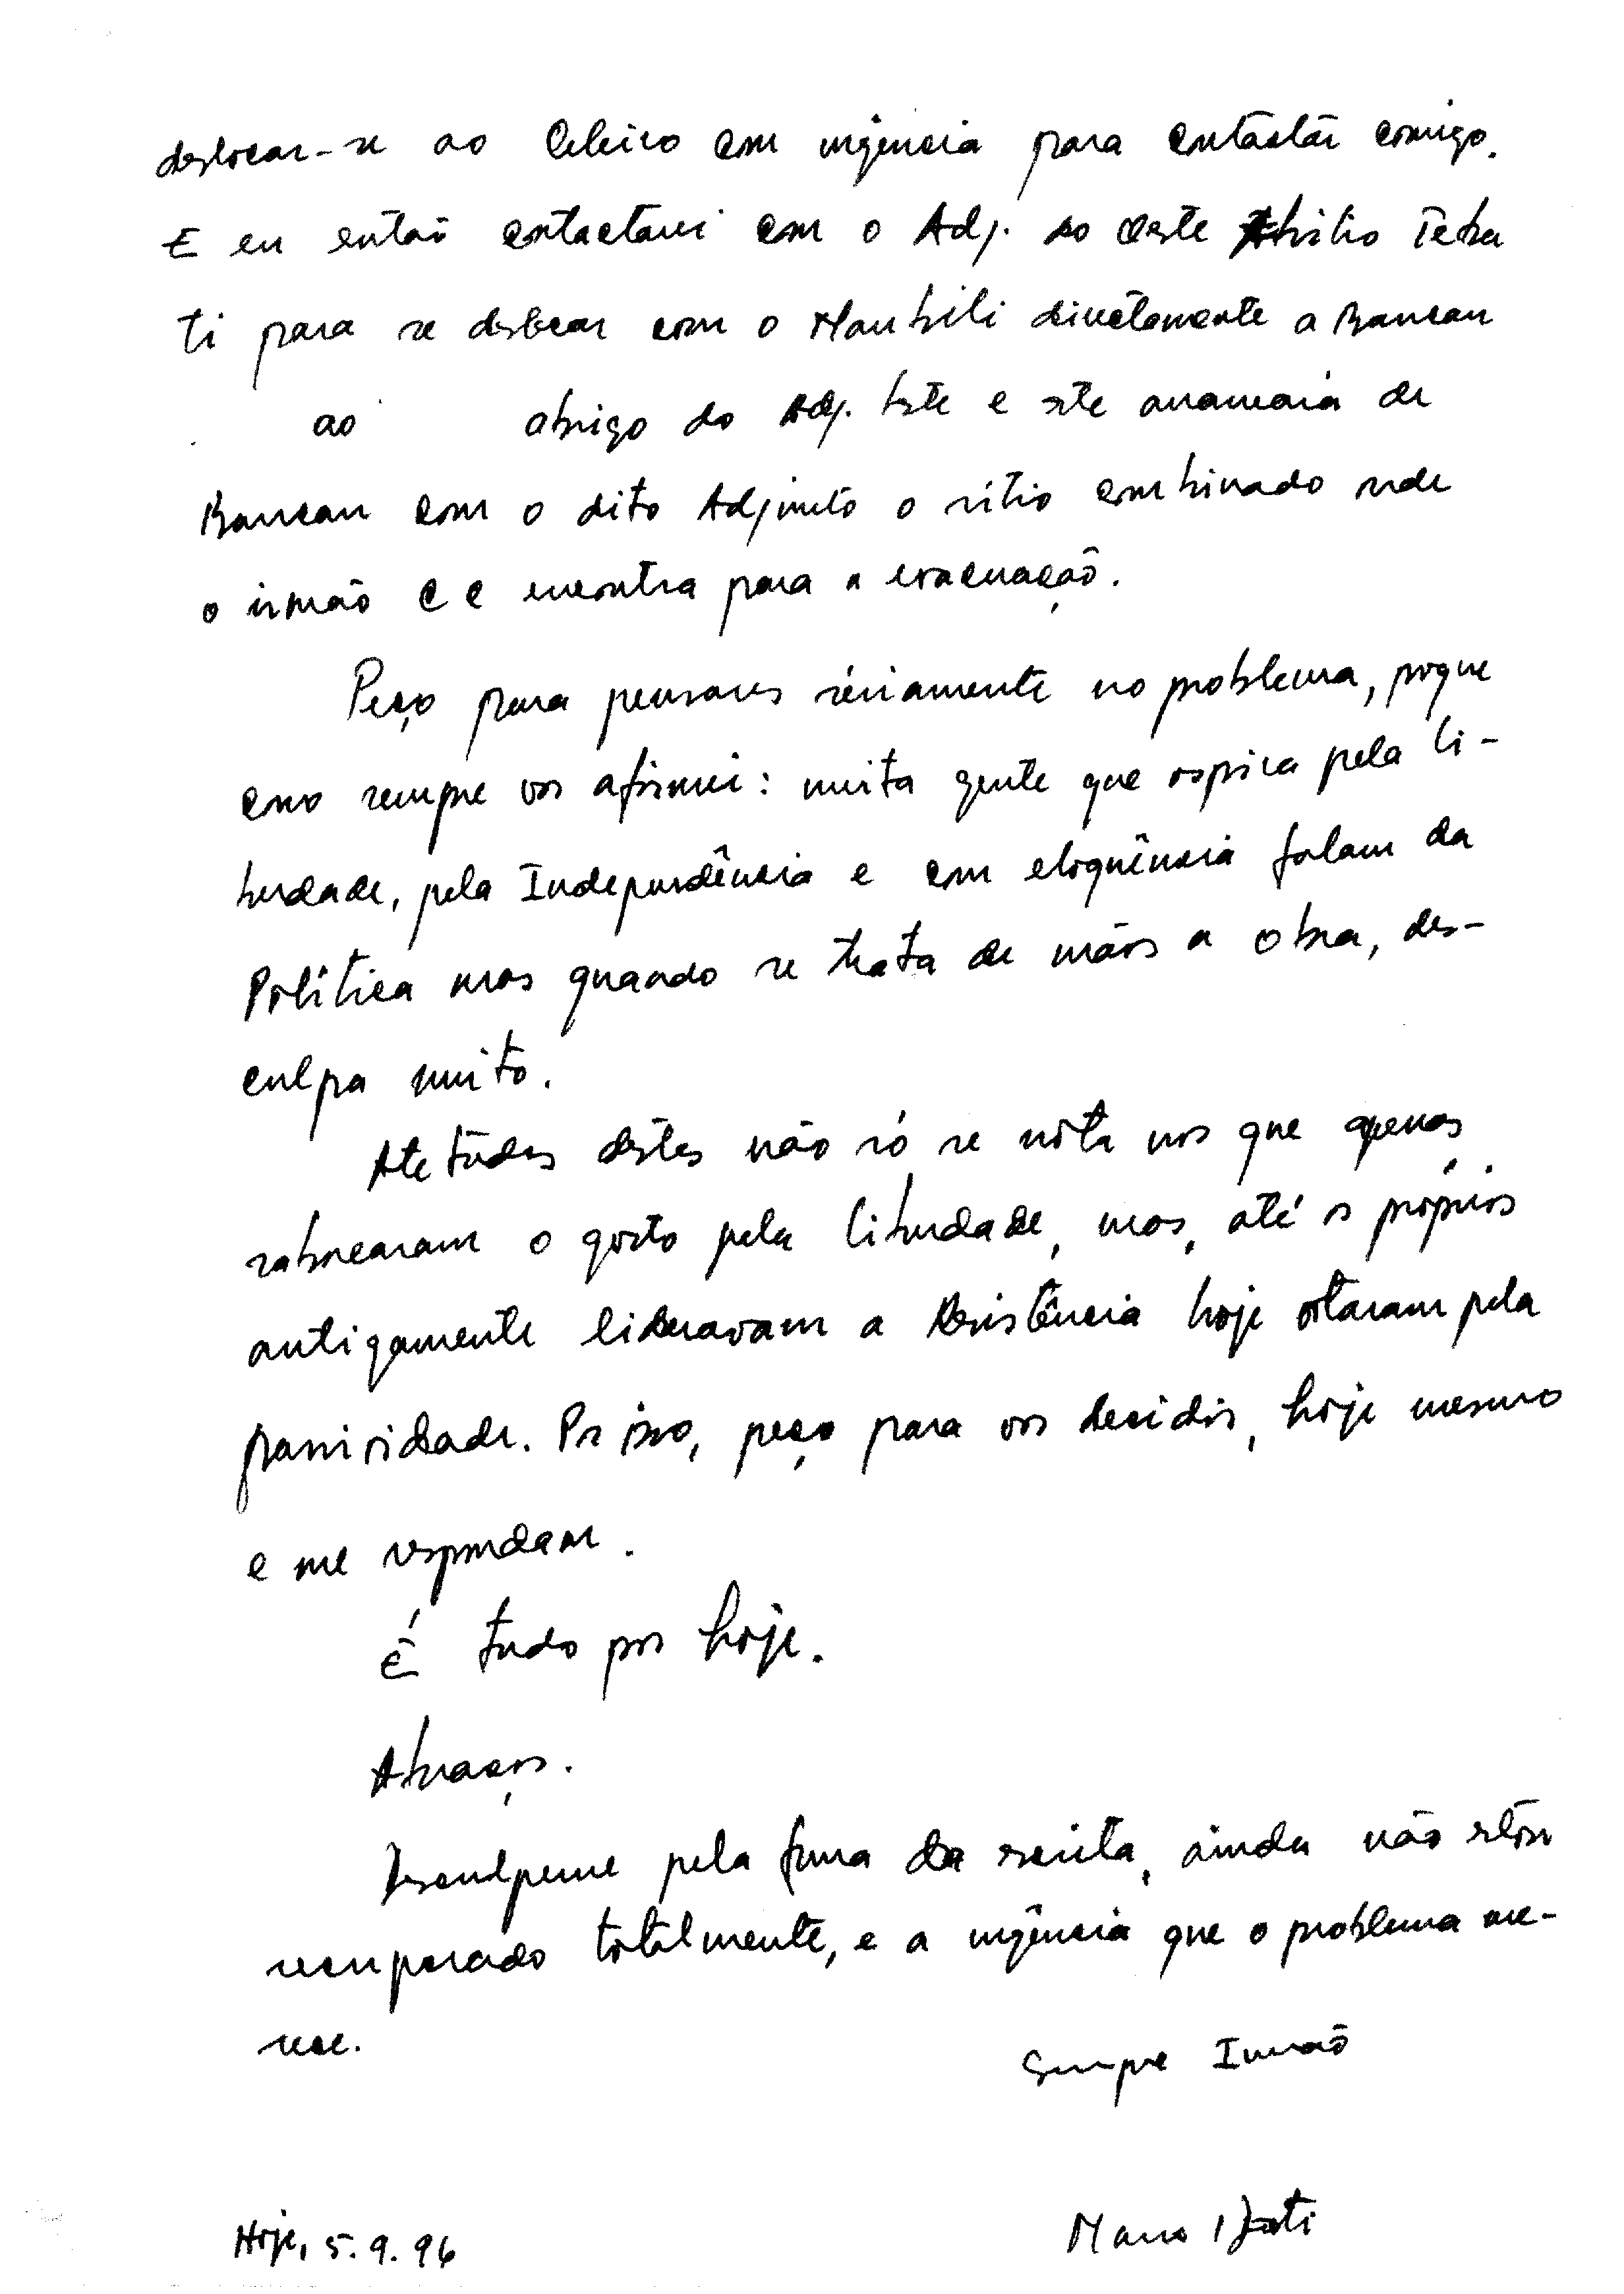 deslocar-se ao Celeiro com urgência para contactar comigo.
E eu então contactarei com o Adj. do Oeste Abílio Teba
ti para se deslocar com o Maubili directamente a Baucau
ao abrigo do Adj. Este e este arrancará de
Baucau com o dito Adjunto o sítio combinado onde
o irmão CC encontra para a evacuação.
Peço para pensares sériamente no problema, porque
como sempre vos afirmei: muita gente que aspira pela li-
berdade, pela Independência e com eloquência falam da
Política mas quando se trata de mãos a obra, des-
culpa muito.
Atetudes destes não só se nota nos que apenas
saborearam o gosto pela liberdade, mas, até os próprios
antigamente lideravam a Resistência hoje optaram pela
passividade. Por isso, peço para vos decidir, hoje mesmo
e me respondam.
É tudo por hoje.
Abraços.
Desculpeme pela forma da escrita, ainda não estou
recuperado totalmente, e a urgência que o problema me-
rece.
Sempre Irmão
Hoje, 5.9.96
Mano